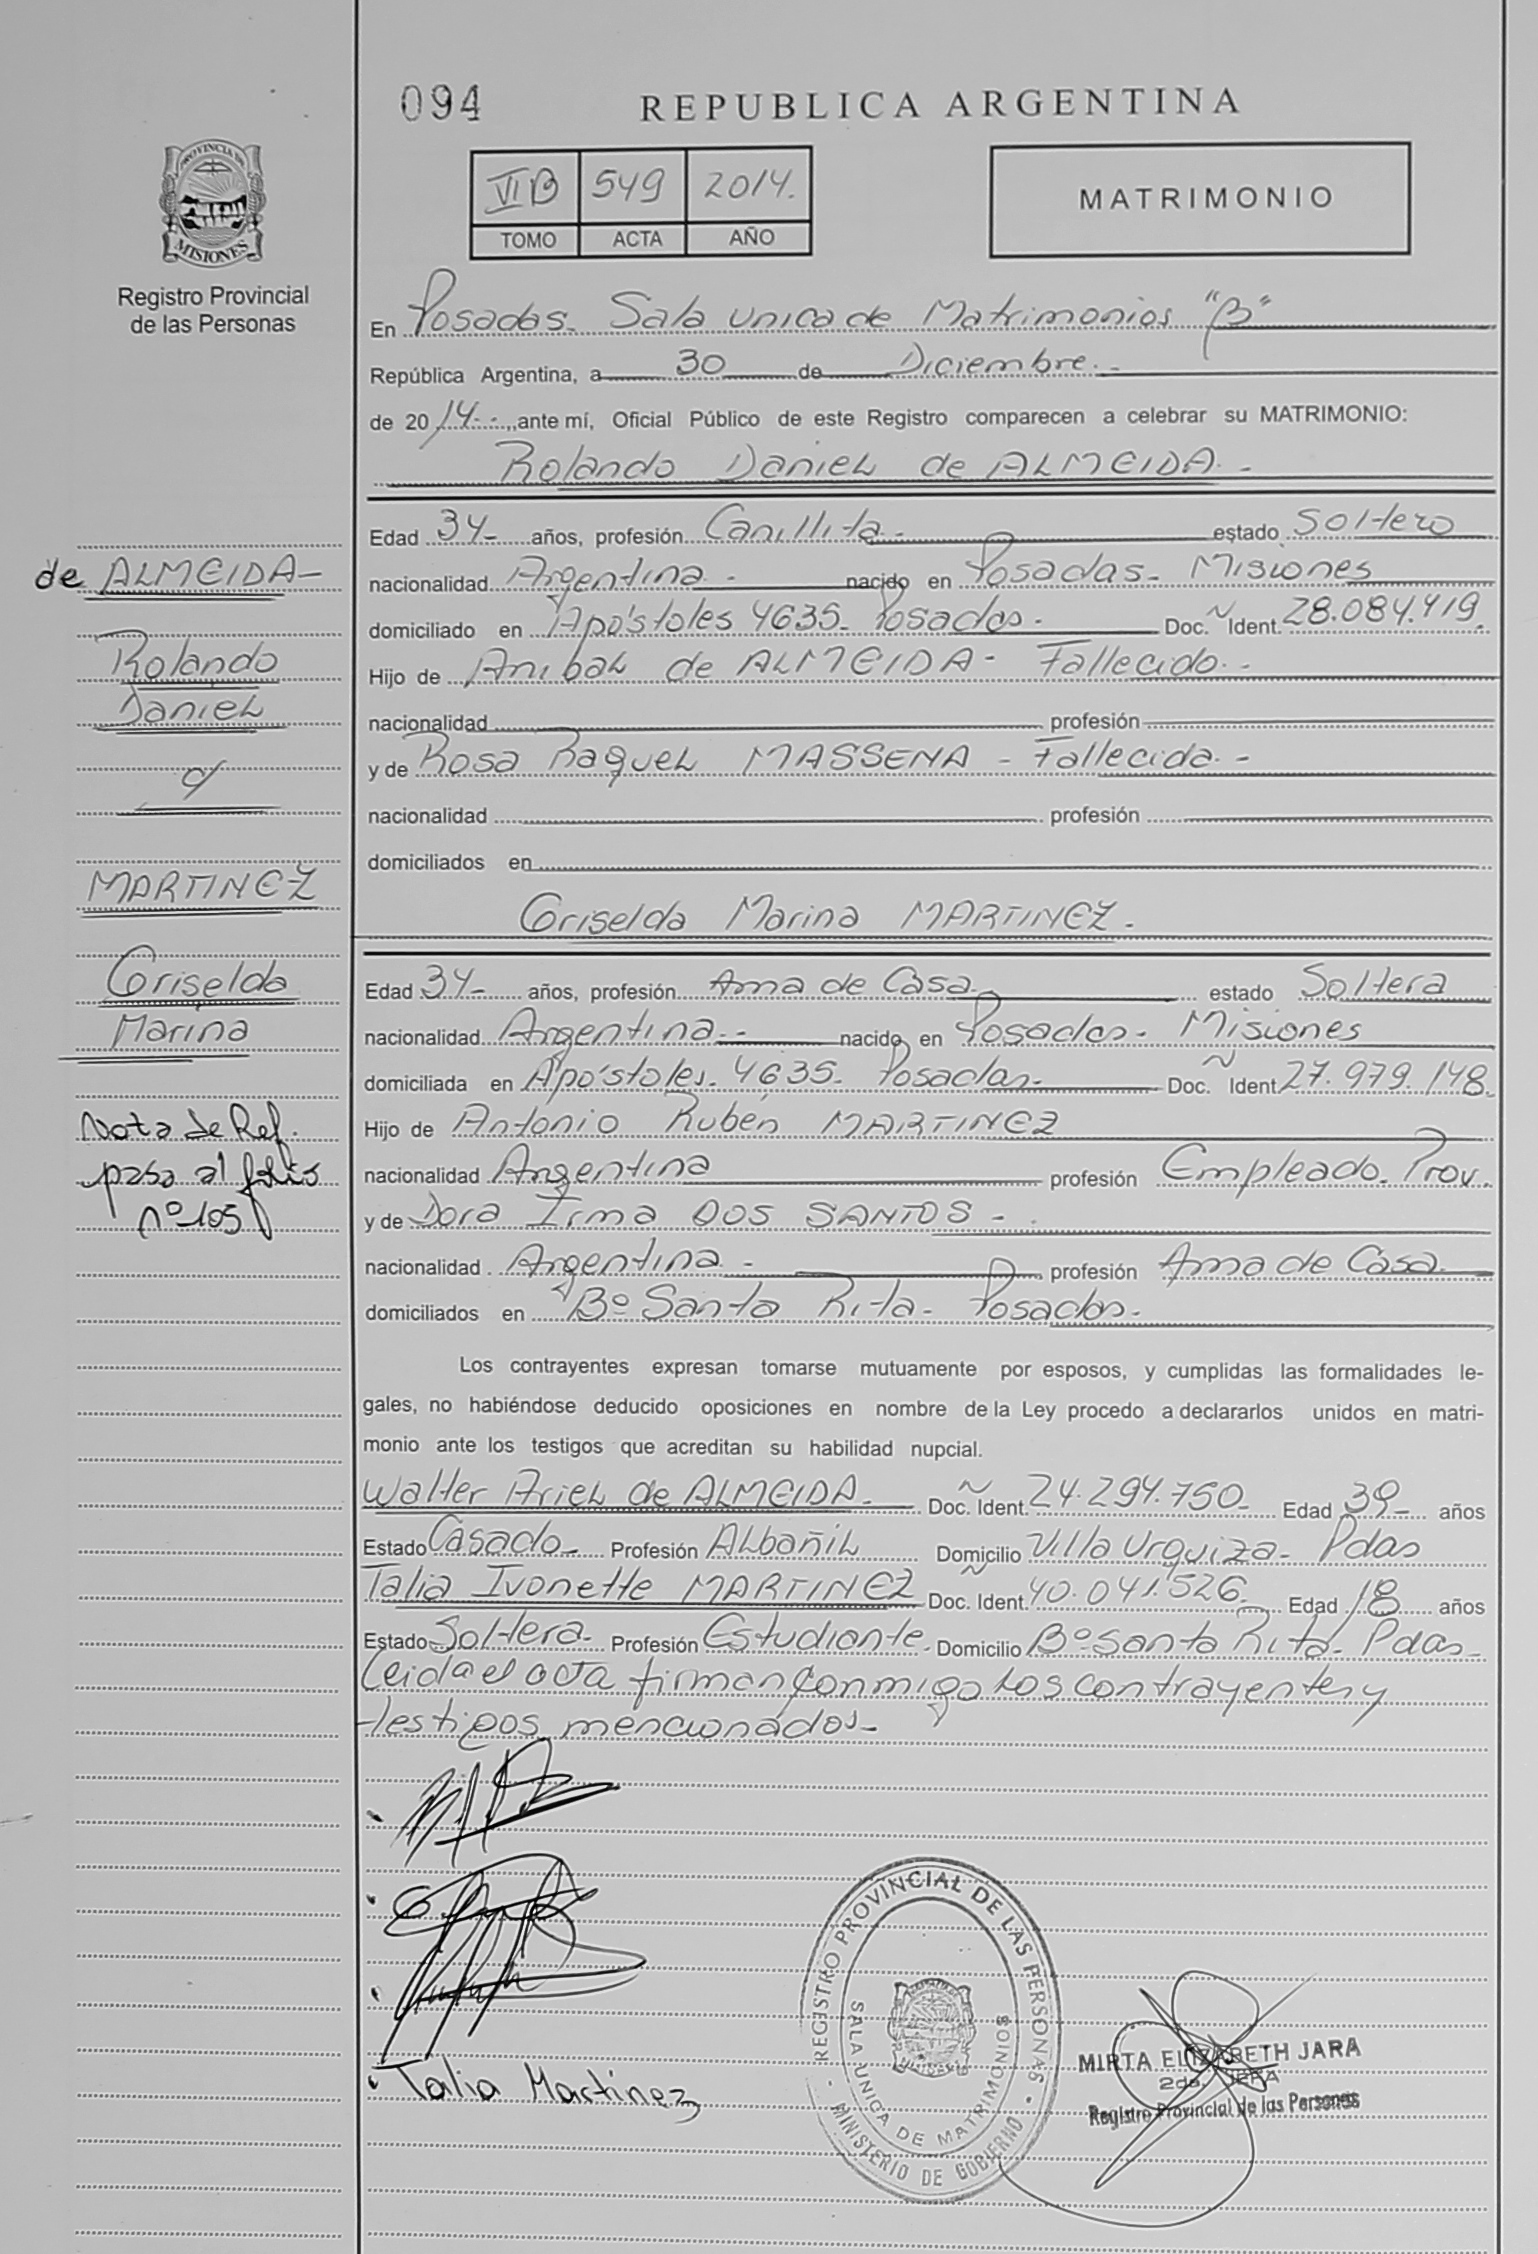 094
REPUBLICA ARGENTINA
VI B 549 2014.
TOMO ACTA AÑO
MATRIMONIO
PROVINCIA DE
MISIONES
Registro Provincial
de las Personas
En Posadas. Sala unica de Matrimonios "B"
República Argentina, a 30 de Diciembre.-
de 2014.-, ante mí, Oficial Público de este Registro comparecen a celebrar su MATRIMONIO:
Rolando Daniel de ALMEIDA.-
Edad 34- años, profesión Canillita.- estado Soltero
nacionalidad Argentina.- nacido en Posadas- Misiones
domiciliado en Apóstoles 4635- Posadas.- Doc. Ñ Ident. 28.084.419.
Hijo de Anibal de ALMEIDA- Fallecido.-
nacionalidad profesión
y de Rosa Raquel MASSENA - Fallecida.-
nacionalidad profesión
domiciliados en
Griselda Marina MARTINEZ.-
Edad 34- años, profesión Ama de Casa. estado Soltera
nacionalidad Argentina.- nacido en Posadas- Misiones
domiciliada en Apóstoles- 4635- Posadas- Doc. Ñ Ident 27.979.148.
Hijo de Antonio Rubén MARTINEZ
nacionalidad Argentina profesión Empleado Prov.
y de Dora Irma DOS SANTOS -.
nacionalidad Argentina.- profesión Ama de Casa-
domiciliados en Bº Santa Rita- Posadas.-
Los contrayentes expresan tomarse mutuamente por esposos, y cumplidas las formalidades le-
gales, no habiéndose deducido oposiciones en nombre de la Ley procedo a declararlos unidos en matri-
monio ante los testigos que acreditan su habilidad nupcial.
Walter Ariel de ALMEIDA.- Doc. Ñ Ident. 24.294.750- Edad 39- años
Estado Casado- Profesión Albañil Domicilio Villa Urquiza- Pdas
Talia Ivonette MARTINEZ Doc. Ñ Ident. 40.041.526- Edad 18 años
Estado Soltera- Profesión Estudiante- Domicilio Bº Santa Rita- Pdas-
Leida el acta firman conmigo los contrayentes y
testigos mencionados-
Talia Martinez
REGISTRO PROVINCIAL DE LAS PERSONAS
SALA UNICA DE MATRIMONIOS
MINISTERIO DE GOBIERNO
MIRTA ELIZABETH JARA
2da. JEFA
Registro Provincial de las Personas
de ALMEIDA-
Rolando
Daniel
c/
MARTINEZ
Griselda
Marina
Nota de Ref.
pasa al folio
nº 105